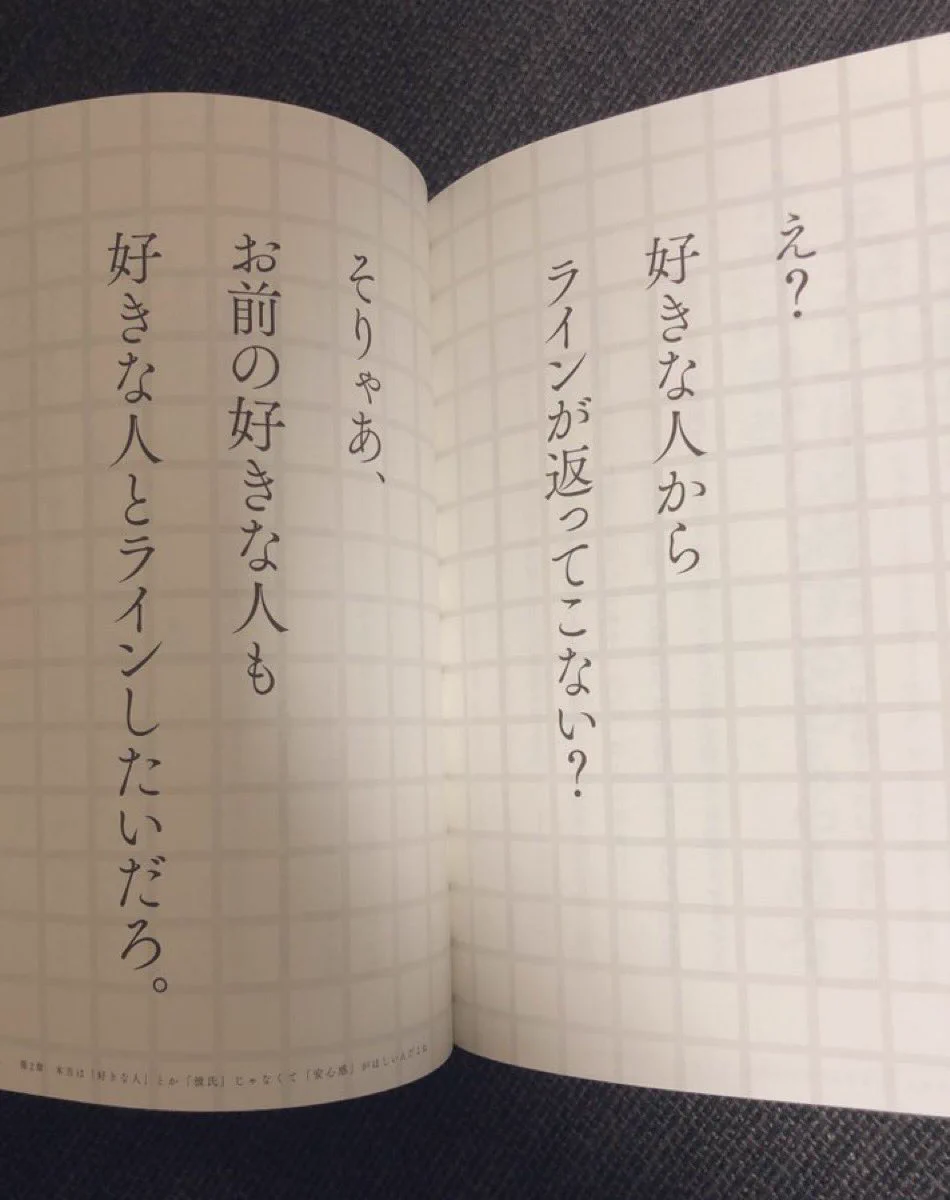 え？
好きな人から
ラインが返ってこない？
そりゃあ、
お前の好きな人も
好きな人とラインしたいだろ。
第2章 本当は「好きな人」とか「彼氏」じゃなくて「安心感」がほしいんだよね